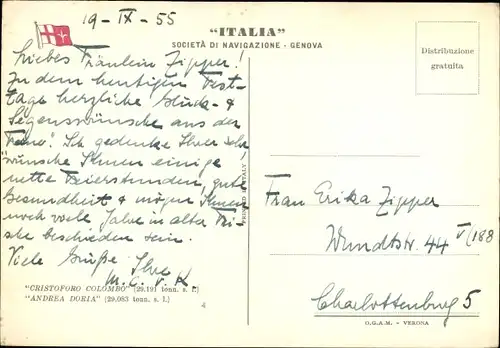 19-IX-55
"ITALIA"
SOCIETÀ DI NAVIGAZIONE - GENOVA
Distribuzione
gratuita
Liebes Fräulein Zipper!
Zu dem heutigen Fest-
tage herzliche Glück- &
Segenswünsche aus der
"Ferne". Ich gedenke Ihrer sehr
wünsche Ihnen einige
nette Feierstunden, gute
Gesundheit & mögen Ihnen
noch viele Jahre in alter Fri-
ste beschieden sein.
Viele Grüße Ihre
M. C. v. K
PRINTED IN ITALY
"CRISTOFORO COLOMBO" (29.191 tonn. s. l.)
"ANDREA DORIA" (29.083 tonn. s. l.)
4
Frau Erika Zipper
Wundtstr. 44 V/188
Charlottenburg 5
O.G.A.M. - VERONA